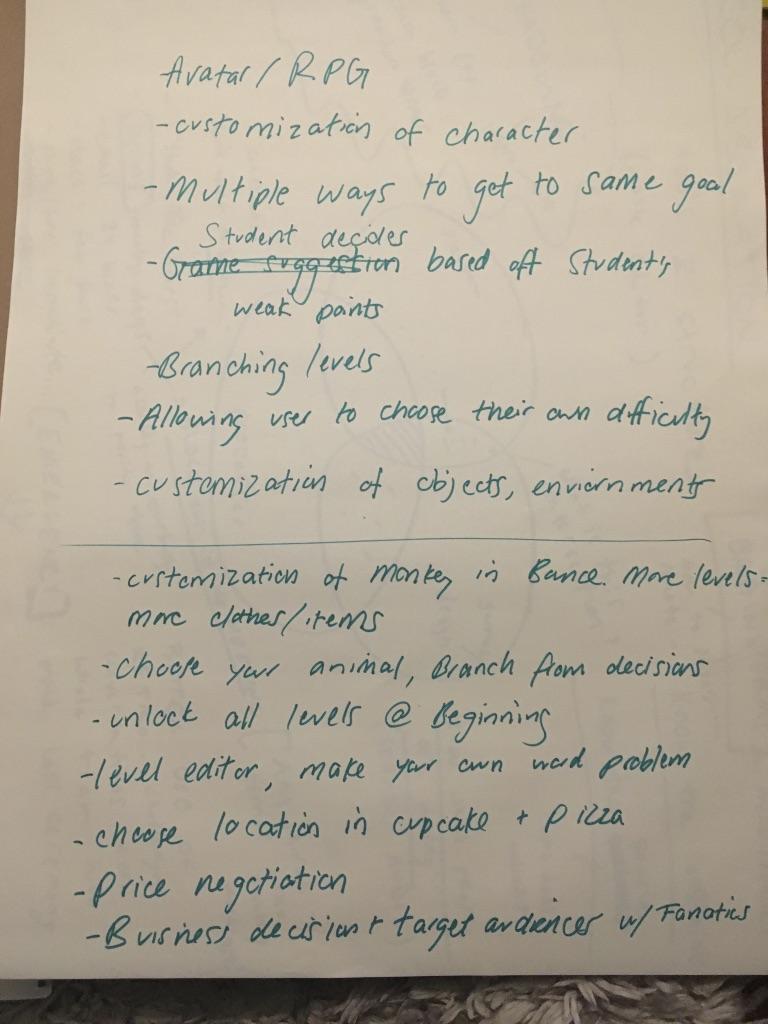 Avatar / RPG
- customization of character
- Multiple ways to get to same goal
Student decides
- Game suggestion based off Student's
weak points
- Branching levels
- Allowing user to choose their own difficulty
- customization of objects, enviornments
- customization of monkey in Bance. More levels =
more clothes/items
- choose your animal, Branch from decisions
- unlock all levels @ Beginning
- level editor, make your own word problem
- choose location in cupcake + pizza
- Price negotiation
- Business decision + target audiences w/ Fanatics